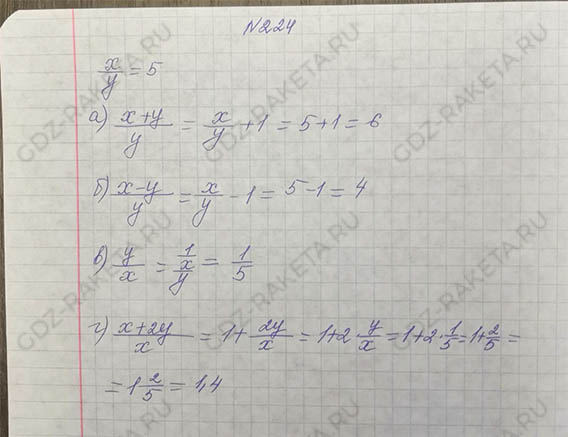 №224
x/y = 5
а) (x+y)/y = x/y + 1 = 5+1 = 6
б) (x-y)/y = x/y - 1 = 5-1 = 4
в) y/x = 1/(x/y) = 1/5
г) (x+2y)/x = 1 + 2y/x = 1+2·y/x = 1+2·1/5 = 1+2/5 =
= 1 2/5 = 1,4
GDZ-RAKETA.RU
GDZ-RAKETA.RU
GDZ-RAKETA.RU
GDZ-RAKETA.RU
GDZ-RAKETA.RU
GDZ-RAKETA.RU